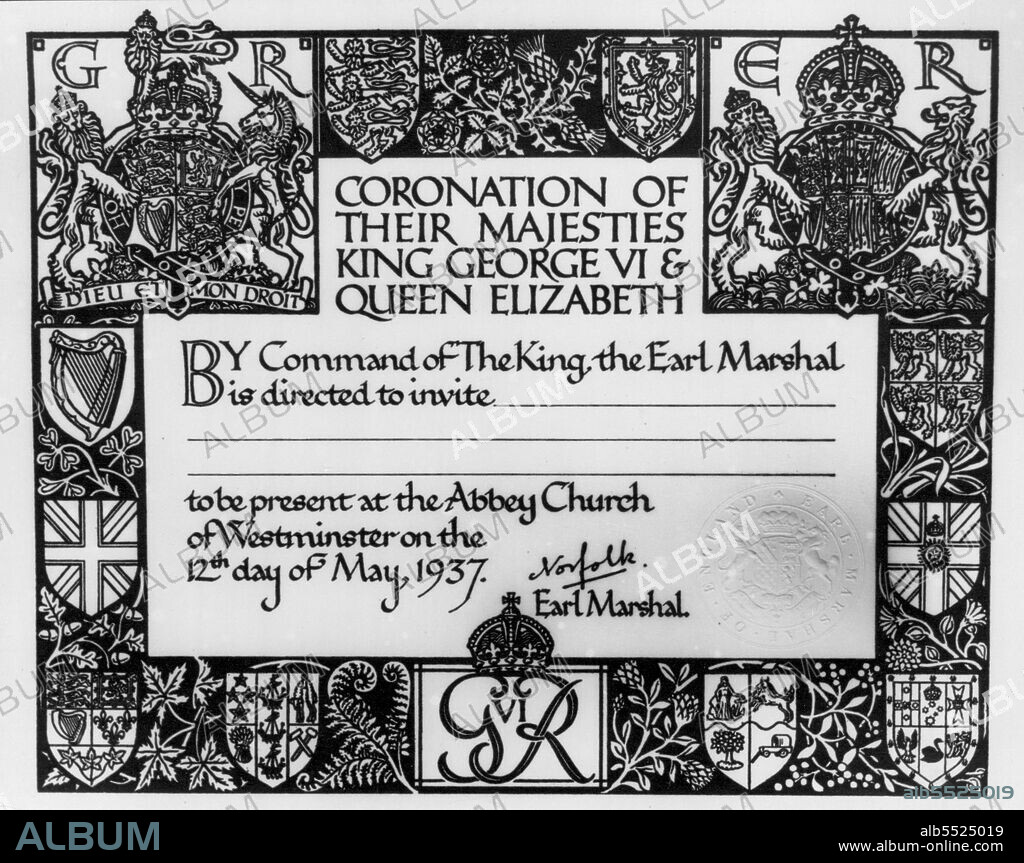 G R
E R
CORONATION OF
THEIR MAJESTIES
KING GEORGE VI &
QUEEN ELIZABETH
DIEU ET MON DROIT
BY Command of The King, the Earl Marshal
is directed to invite
to be present at the Abbey Church
of Westminster on the
12th day of May, 1937.
Norfolk.
Earl Marshal.
EARL · MARSHAL · OF · ENGLAND
G VI R
alb5525019
ALBUM
alb5525019
www.album-online.com